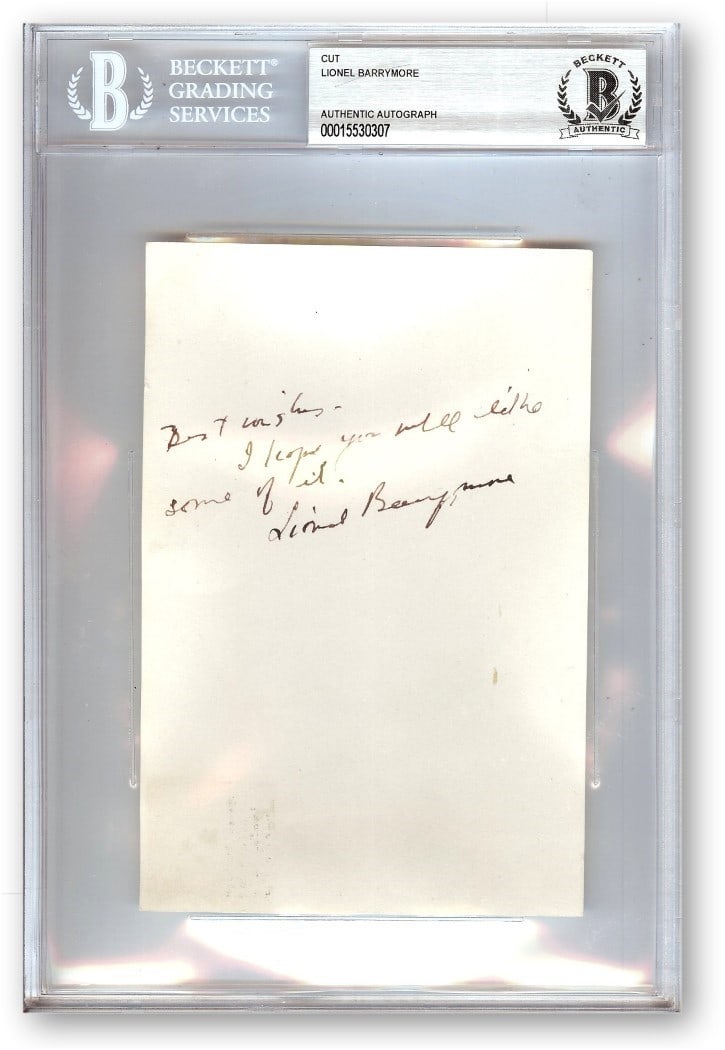 BECKETT®
GRADING
SERVICES
CUT
LIONEL BARRYMORE
AUTHENTIC AUTOGRAPH
00015530307
BECKETT
B
AUTHENTIC
B
Best wishes -
I hope you will like
some of it.
Lionel Barrymore